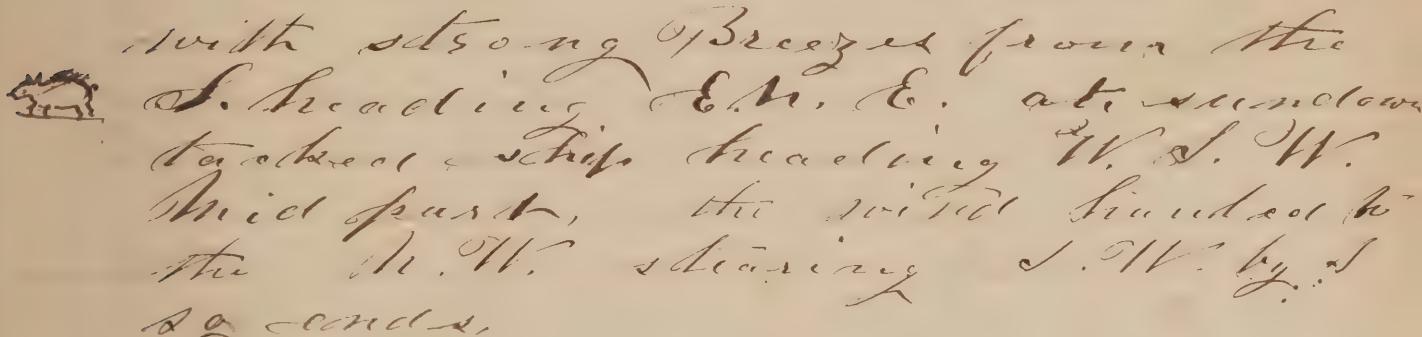 with strong Breezes from the
S. heading E.N.E. at sundown
tacked ship heading W.S.W.
Mid part, the wind hauled to
the N.W. stearing S.W. by. S
so ends,